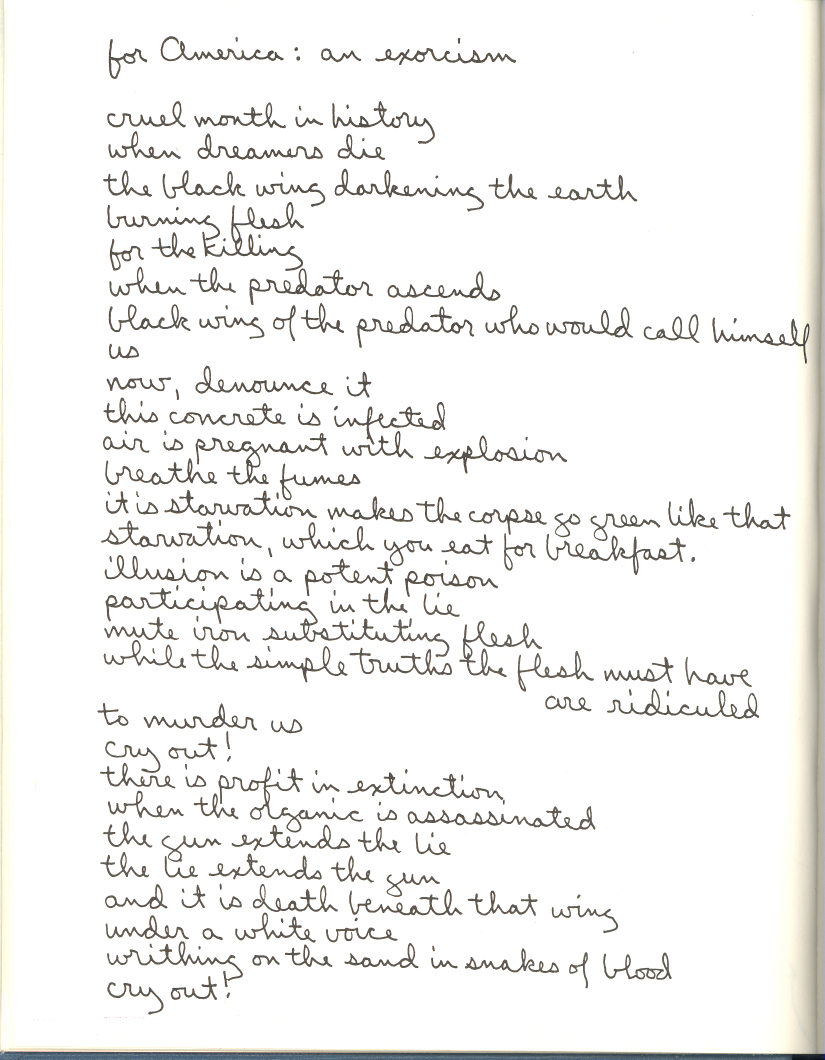 for America: an exorcism
cruel month in history
when dreamers die
the black wing darkening the earth
burning flesh
for the killing
when the predator ascends
black wing of the predator who would call himself
us
now, denounce it
this concrete is infected
air is pregnant with explosion
breathe the fumes
it is starvation makes the corpse go green like that
starvation, which you eat for breakfast.
illusion is a potent poison
participating in the lie
mute iron substituting flesh
while the simple truths the flesh must have
are ridiculed
to murder us
cry out!
there is profit in extinction
when the organic is assassinated
the gun extends the lie
the lie extends the gun
and it is death beneath that wing
under a white voice
writhing on the sand in snakes of blood
cry out!